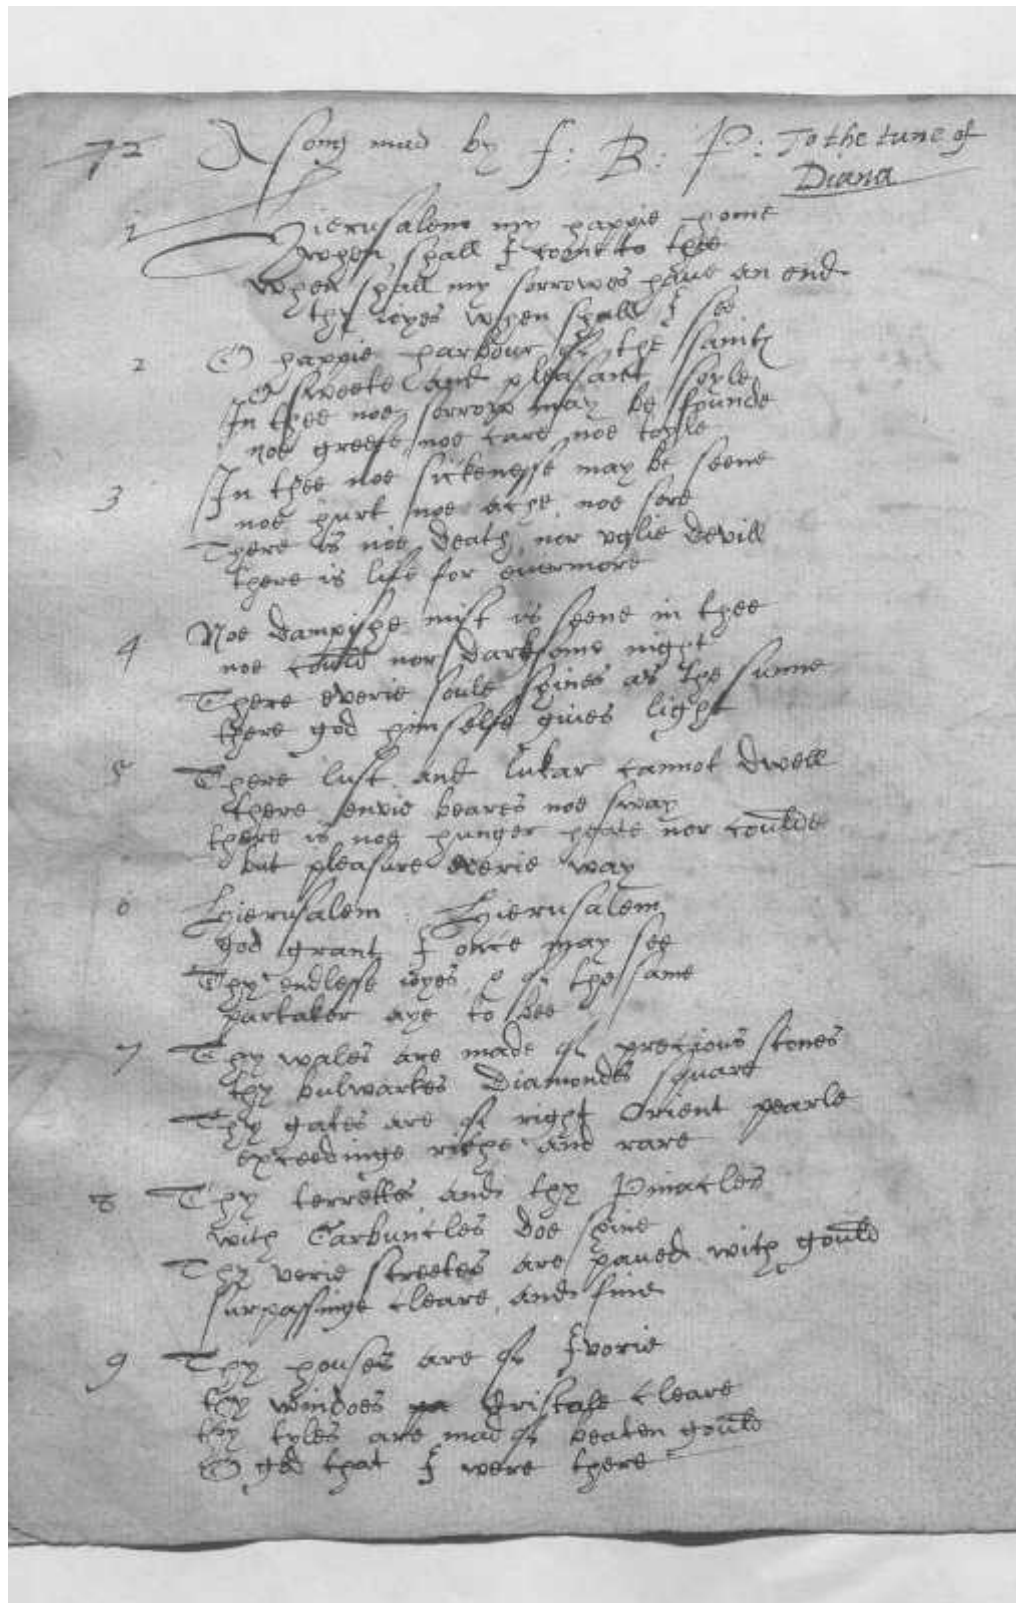 72 A song mad by F: B: P: To the tune of
Diana
1 Hierusalem my happie home
when shall I come to thee
when shall my sorrowes haue an end
thy ioyes when shall I see
2 O happie harbour of the saints
O sweete and pleasant soyle
In thee noe sorrow may be founde
noe greefe, noe care, noe toyle
3 In thee noe sickenesse may be seene
noe hurt, noe ache, noe sore
There is noe death, nor uglie devill
there is life for euermore
4 Noe dampishe mist is seene in thee
noe could nor darksome night
There everie soule shines as the sunne
there god himselfe giues light
5 There lust and lukar cannot dwell
there envie beares noe sway
there is noe hunger heate nor coulde
but pleasure everie way
6 Hierusalem: Hierusalem
god grant I once may see
Thy endlesse ioyes, & of the same
partaker aye to bee
7 Thy wales are made of pretious stones
thy bulwarkes Diamondes square
Thy gates are of right Orient pearle
exceedinge riche and rare
8 Thy terrettes, and thy Pinacles
with Carbuncles doe shine
Thy verie streetes are paued with gould
surpassinge cleare, and fine
9 Thy houses are of Ivorie
thy windoes Cristale cleare
thy tyles are mad of beaten gould
O god that I were there